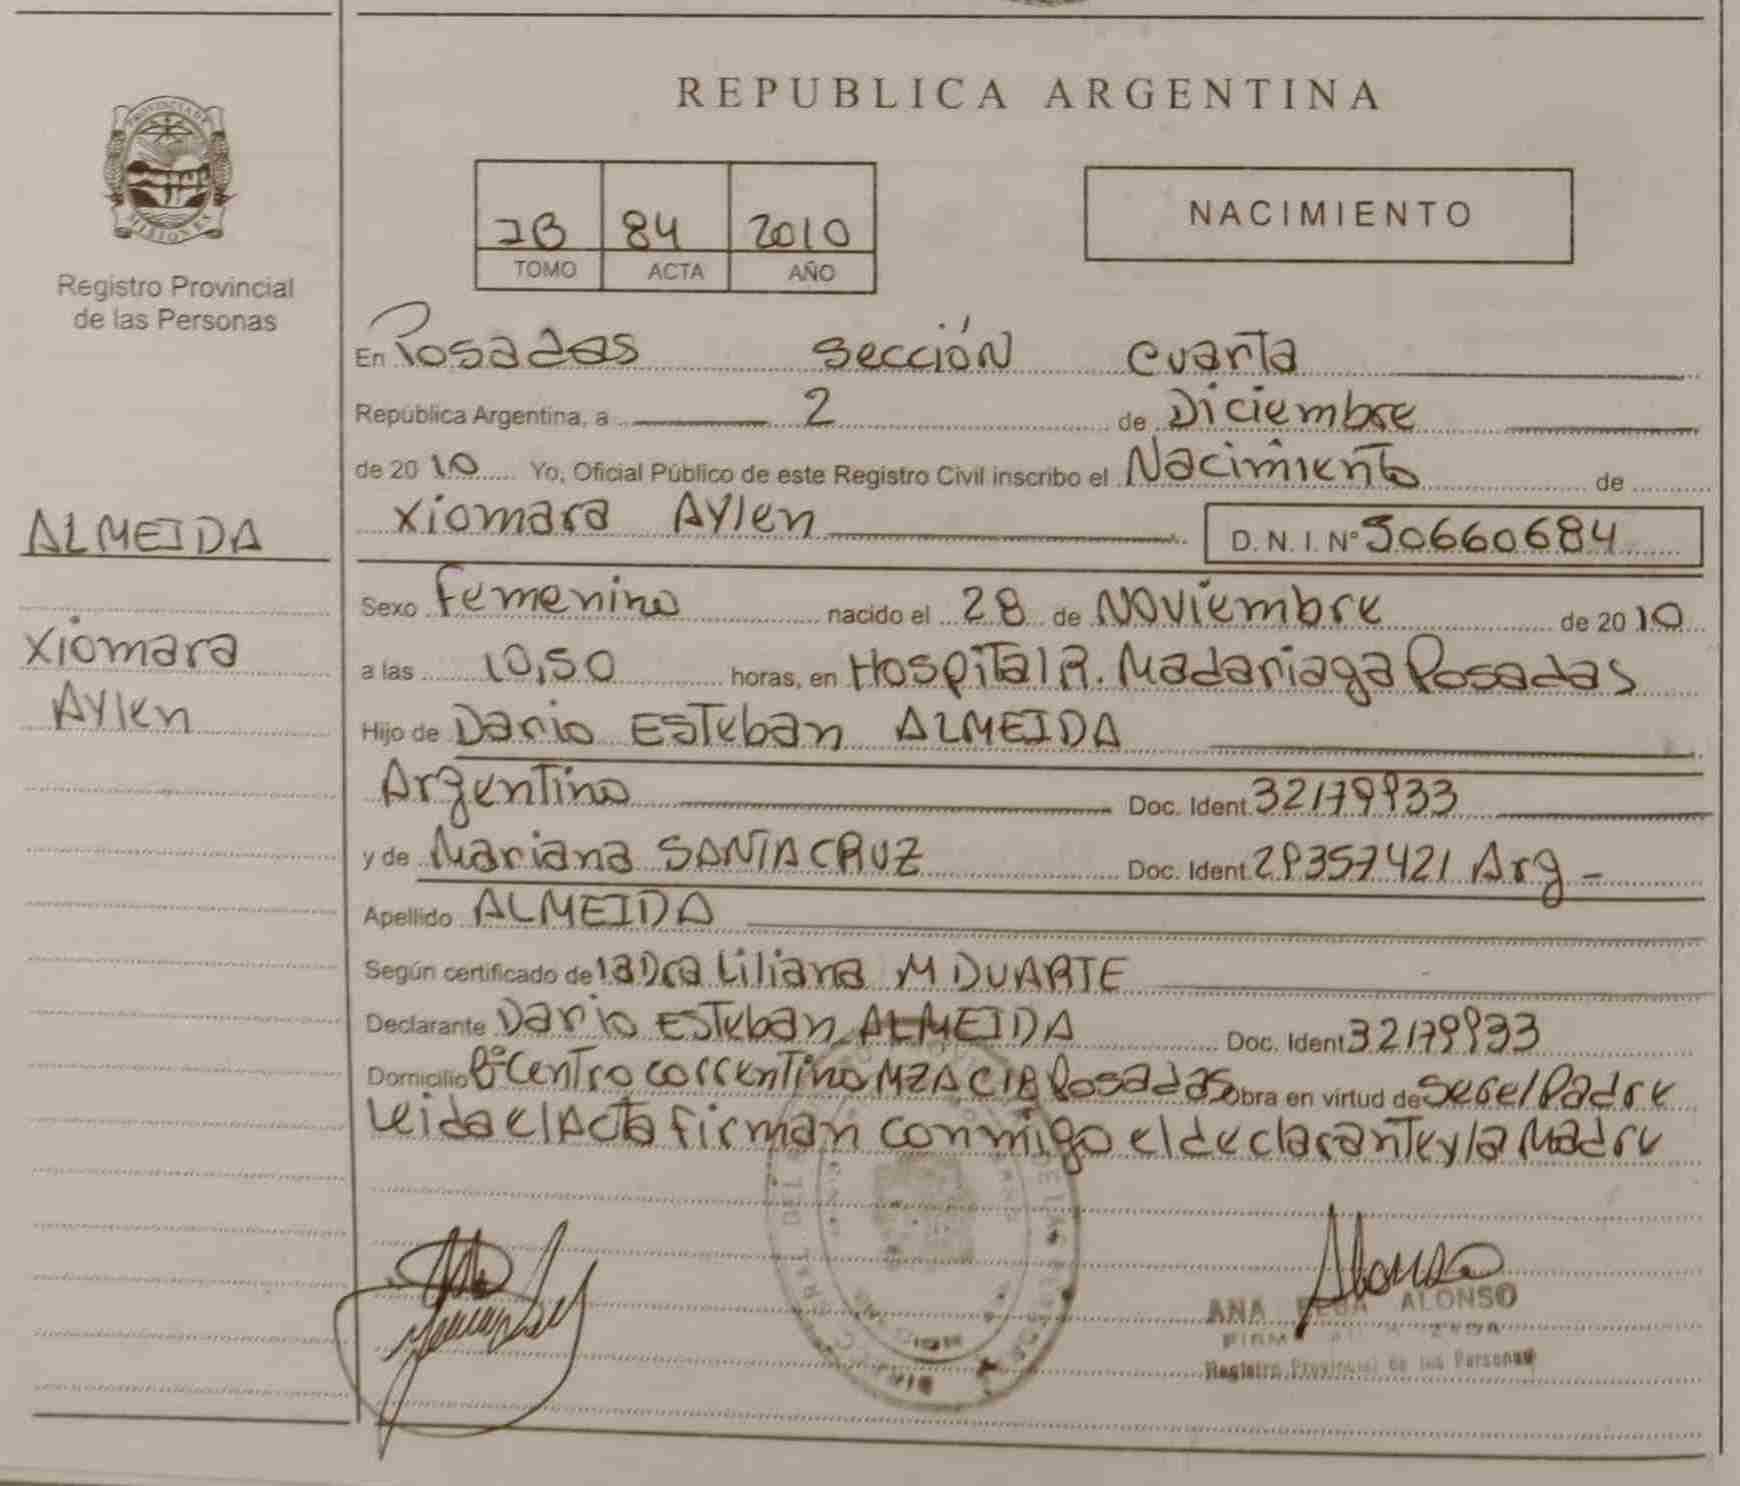 PROVINCIA DE
MISIONES
Registro Provincial
de las Personas
ALMEIDA
Xiomara
Aylen
REPUBLICA ARGENTINA
84 2010
TOMO ACTA AÑO
NACIMIENTO
En Posadas sección cuarta
República Argentina, a 2 de Diciembre
de 2010 Yo, Oficial Público de este Registro Civil inscribo el Nacimiento de
Xiomara Aylen D. N. I. Nº 50660684
Sexo Femenino nacido el 28 de Noviembre de 2010
a las 10,50 horas, en Hospital R. Madariaga Posadas
Hijo de Dario Esteban ALMEIDA
Argentino Doc. Ident. 32179933
y de Mariana SANTA CRUZ Doc. Ident. 29357421 Arg -
Apellido ALMEIDA
Según certificado de la Dra Liliana M DUARTE
Declarante Dario Esteban ALMEIDA Doc. Ident 32179933
Domicilio Bº Centro correntino MZA C Posadas obra en virtud de ser el Padre
Leida el Acta firman conmigo el declarante y la Madre
ANA ALONSO
Registro Provincial de las Personas